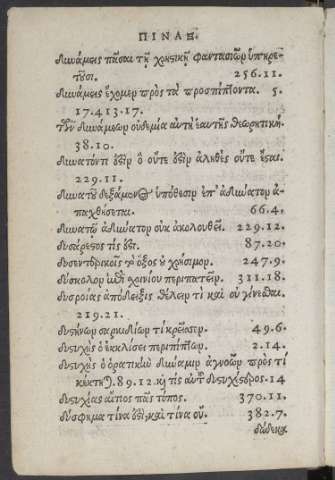 ΠΙΝΑΞ.
δυνάμεις πᾶσαι τῇ χρηστικῇ φαντασιῶν ὑπηρε-
τοῦσι. 256.11.
δυνάμεις ἔχομεν πρὸς τὰ προσπίπτοντα. 5.
17.413.17.
τῶν δυνάμεων οὐδεμία αὐτὴ ἑαυτῆς θεωρητική.
38.10.
δυνατόν τι ἐστὶν ὃ οὔτε ἐστὶν ἀληθὲς οὔτε ἔσται.
229.11.
δυνατοῦ δεξάμενος ὑπόθεσιν ἐπ' ἀδύνατον ἀ-
παχθήσεται. 66.4.
δυνατῷ ἀδύνατον οὐκ ἀκολουθεῖ. 229.12.
δυσάρεστος τίς ἐστι. 87.20.
δυσεντερικοῖς τὸ ὄξος οὐ χρήσιμον. 247.9.
δύσκολον ἐπὶ σχοινίου περιπατεῖν. 311.18.
δυσροίας ἀπόδειξις θέλειν τὶ καὶ οὐ γίνεσθαι.
219.21.
δυστήνων σαρκιδίων τὶ κρεῖσσον. 49.6.
δυστυχὴς ὁ ἐκκλίσει περιπίπτων. 2.14.
δυστυχὴς ὁ ὁρατικὴν δύναμιν ἀγνοῶν πρὸς τί
κέκτηται. 89.12. καὶ τίς αὐτοῦ δυστυχέστερος. 14
δυστυχίας αἴτιος πᾶς τόπος. 370.11.
δύσφημα τίνα ἐστὶ, καὶ τίνα οὔ. 382.7.
δώδεκα